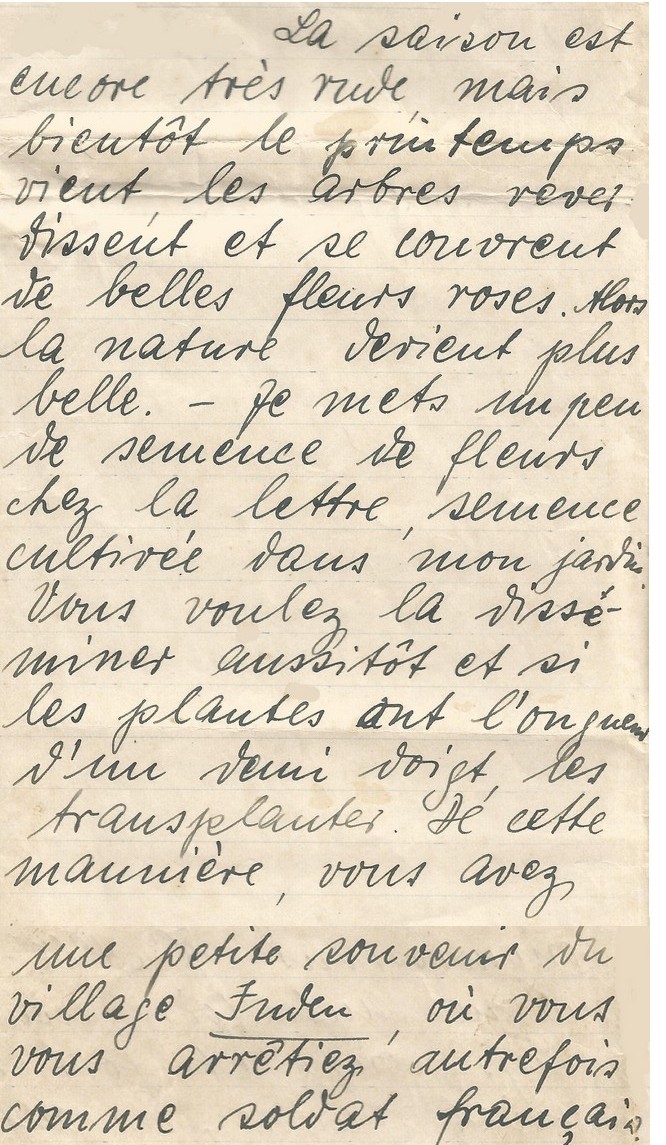 La saison est
encore très rude, mais
bientôt le printemps
vient, les arbres rever
dissent et se couvrent
de belles fleurs roses. Alors
la nature devient plus
belle. – Je mets un peu
de semence de fleurs
chez la lettre, semence
cultivée dans mon jardin.
Vous voulez la dissé-
miner aussitôt et si
les plantes ont l'ongueur
d'un demi doigt, les
transplanter. Dé cette
mannière, vous avez
une petite souvenir du
village Inden, où vous
vous arrêtiez autrefois
comme soldat français.